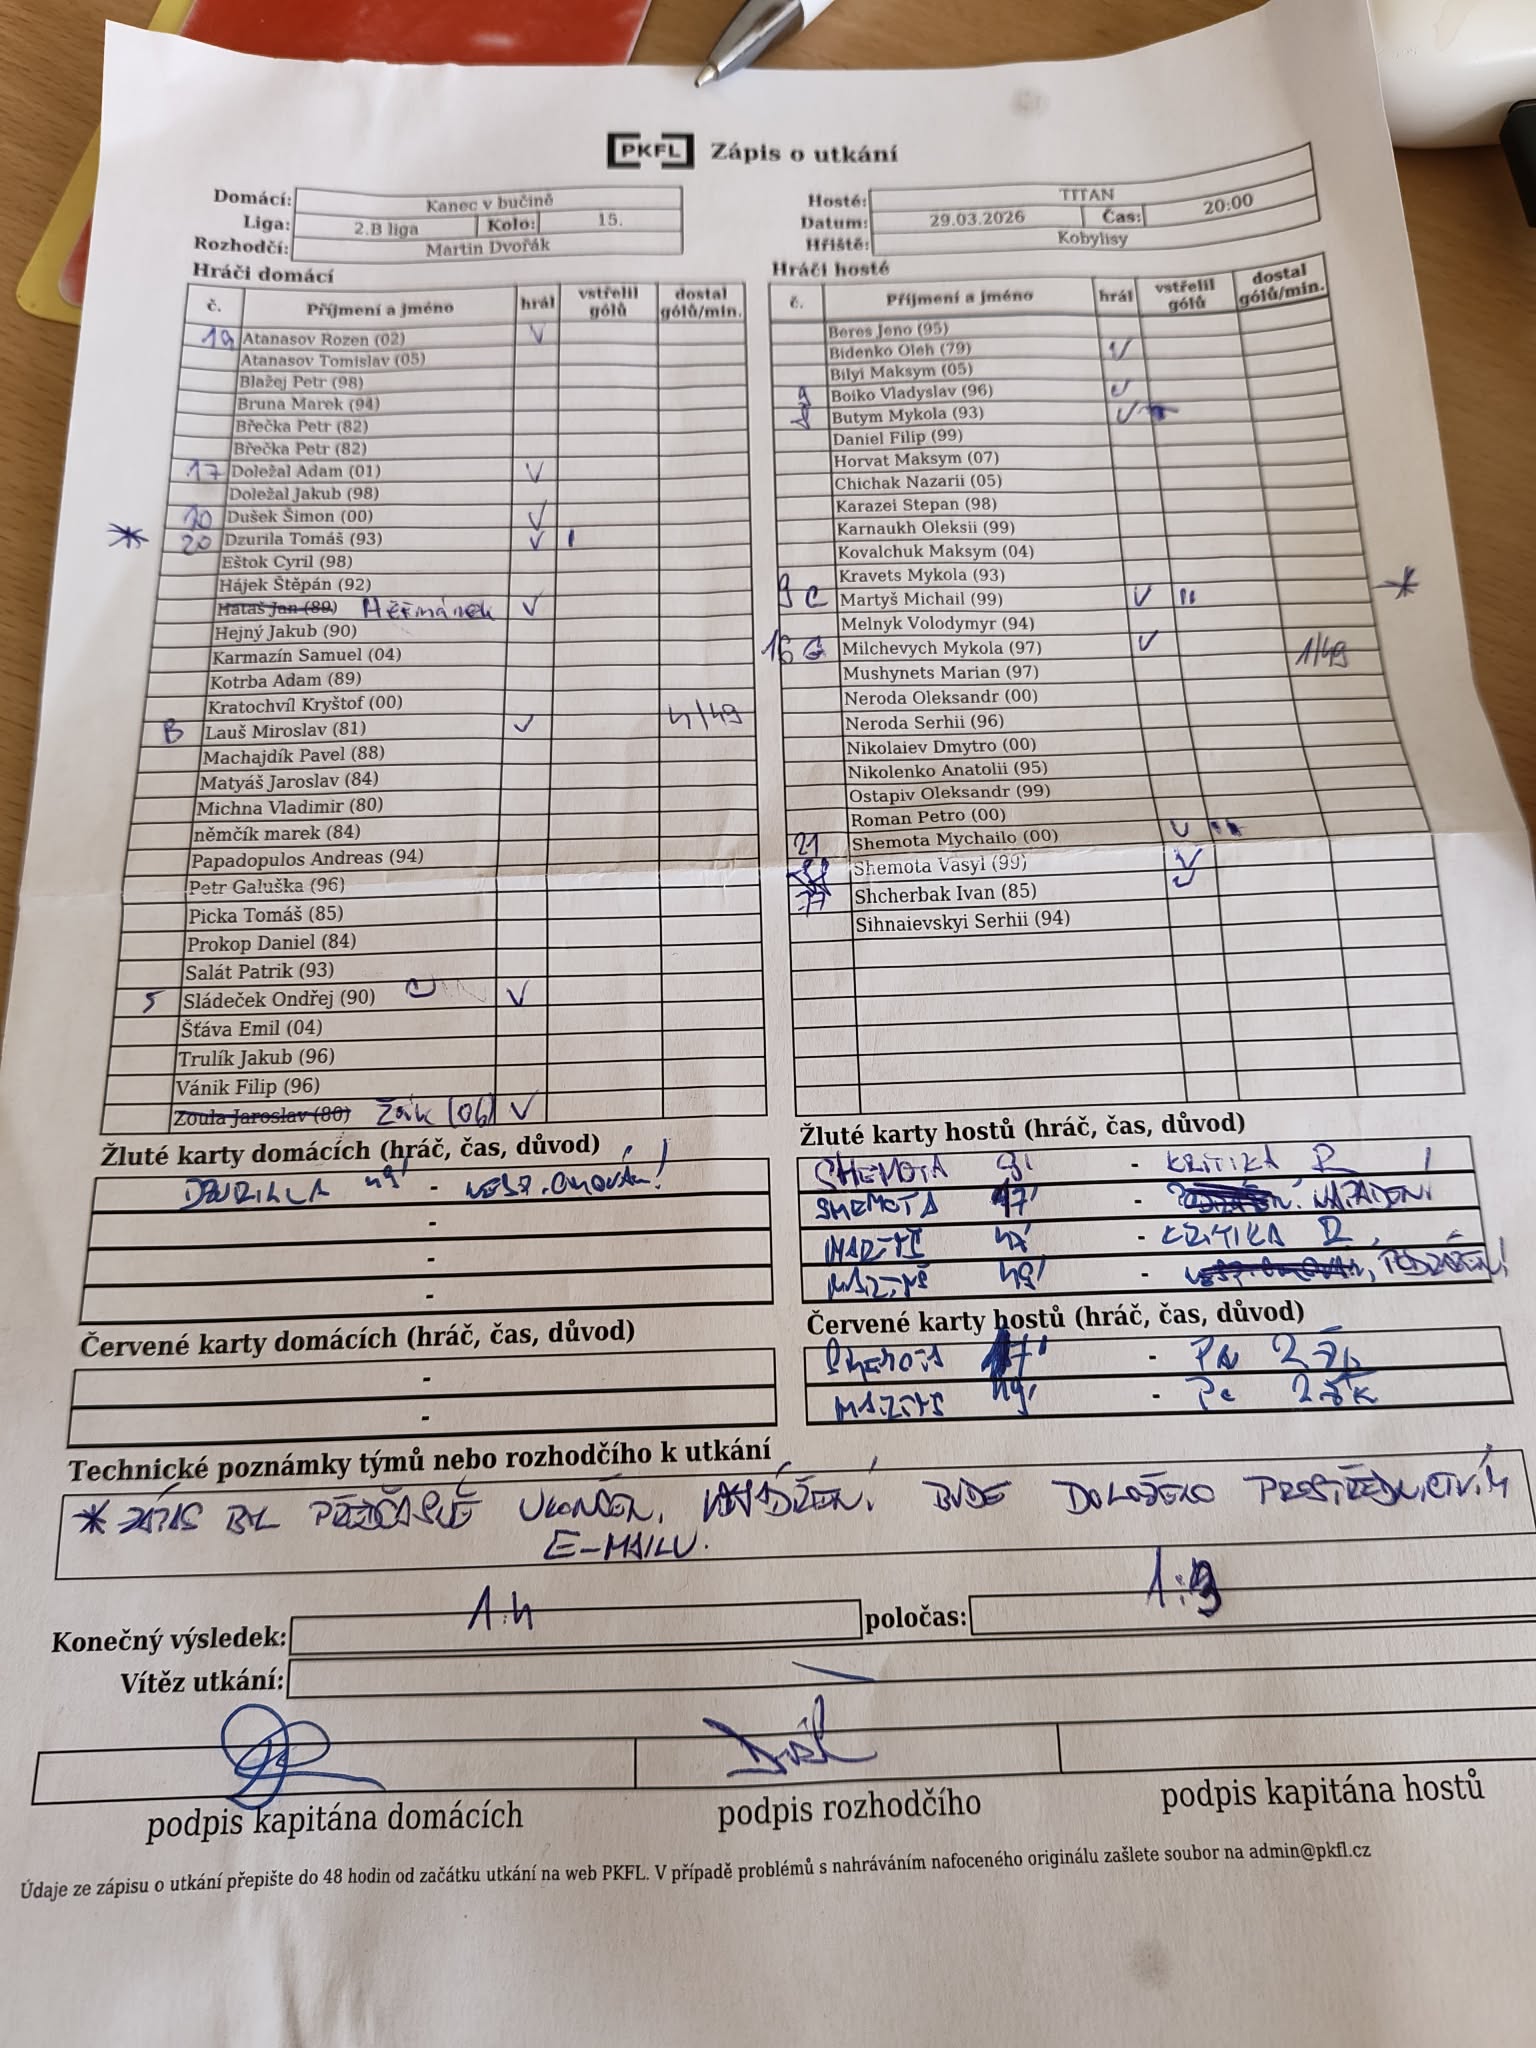 PKFL Zápis o utkání
Domácí: Kanec v bučině
Liga: 2.B liga Kolo: 15.
Rozhodčí: Martin Dvořák
Hosté: TITAN
Datum: 29.03.2026 Čas: 20:00
Hřiště: Kobylisy
Hráči domácí
č. Příjmení a jméno hrál vstřelil gólů dostal gólů/min.
19 Atanasov Rozen (02) V
Atanasov Tomislav (05)
Blažej Petr (98)
Bruna Marek (94)
Břečka Petr (82)
Břečka Petr (82)
17 Doležal Adam (01) V
Doležal Jakub (98)
10 Dušek Šimon (00) V
* 20 Dzurila Tomáš (93) V I
Eštok Cyril (98)
Hájek Štěpán (92)
Hataš Jan (89) Heřmánek V
Hejný Jakub (90)
Karmazín Samuel (04)
Kotrba Adam (89)
Kratochvíl Kryštof (00)
B Lauš Miroslav (81) V 4/49
Machajdík Pavel (88)
Matyáš Jaroslav (84)
Michna Vladimir (80)
němčík marek (84)
Papadopulos Andreas (94)
Petr Galuška (96)
Picka Tomáš (85)
Prokop Daniel (84)
Salát Patrik (93)
5 Sládeček Ondřej (90) C V
Šťáva Emil (04)
Trulík Jakub (96)
Vánik Filip (96)
Zoula Jaroslav (80) Žák (06) V
Hráči hosté
č. Příjmení a jméno hrál vstřelil gólů dostal gólů/min.
Beres Jeno (95)
Bidenko Oleh (79) V
Bilyi Maksym (05)
9 Boiko Vladyslav (96) V
8 Butym Mykola (93) V
Daniel Filip (99)
Horvat Maksym (07)
Chichak Nazarii (05)
Karazei Stepan (98)
Karnaukh Oleksii (99)
Kovalchuk Maksym (04)
Kravets Mykola (93)
9 C Martyš Michail (99) V II *
Melnyk Volodymyr (94)
16 G Milchevych Mykola (97) V 1/49
Mushynets Marian (97)
Neroda Oleksandr (00)
Neroda Serhii (96)
Nikolaiev Dmytro (00)
Nikolenko Anatolii (95)
Ostapiv Oleksandr (99)
Roman Petro (00)
21 Shemota Mychailo (00) V II
Shemota Vasyl (99) V
77 Shcherbak Ivan (85) V
Sihnaievskyi Serhii (94)
Žluté karty domácích (hráč, čas, důvod)
DZURILLA 49' - NESP. CHOVÁNÍ
-
-
-
Žluté karty hostů (hráč, čas, důvod)
SHEMOTA 9' - KRITIKA R
SHEMOTA 17' - NAPADENÍ
MARTYŠ 47' - KRITIKA R
MARTYŠ 49' - PODRAŽENÍ
Červené karty domácích (hráč, čas, důvod)
-
-
Červené karty hostů (hráč, čas, důvod)
SHEMOTA 17' - PO 2 ŽK
MARTYŠ 49' - PO 2 ŽK
Technické poznámky týmů nebo rozhodčího k utkání
* ZÁPAS BYL PŘEDČASNĚ UKONČEN, VYJÁDŘENÍ BUDE DOLOŽENO PROSTŘEDNICTVÍM
E-MAILU.
Konečný výsledek: 1:4 poločas: 1:3
Vítěz utkání:
podpis kapitána domácích podpis rozhodčího podpis kapitána hostů
Údaje ze zápisu o utkání přepište do 48 hodin od začátku utkání na web PKFL. V případě problémů s nahráváním nafoceného originálu zašlete soubor na admin@pkfl.cz